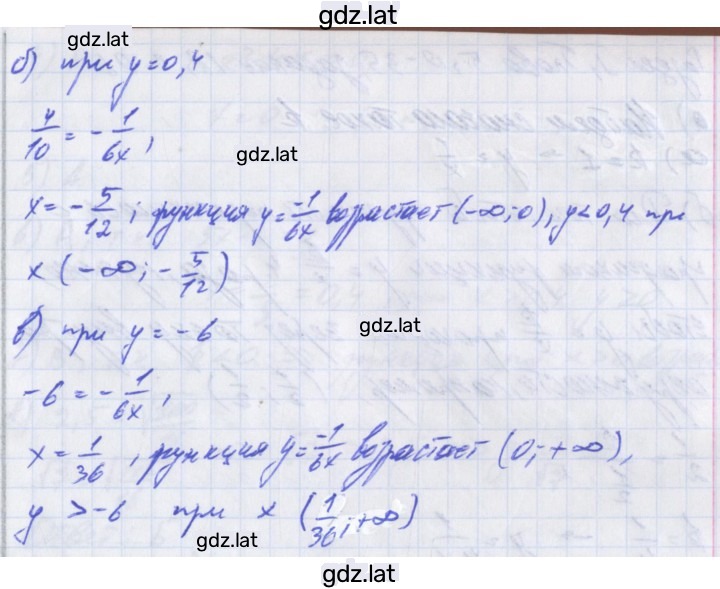 gdz.lat
gdz.lat
б) при y=0,4
4/10 = - 1/6x ,
gdz.lat
x = - 5/12 ; функция y = -1/6x возрастает (-∞; 0), y<0,4 при
x (-∞; - 5/12)
в) при y = -6
gdz.lat
-6 = - 1/6x ,
x = 1/36 , функция y = -1/6x возрастает (0; +∞),
y > -6 при x (1/36; +∞)
gdz.lat
gdz.lat